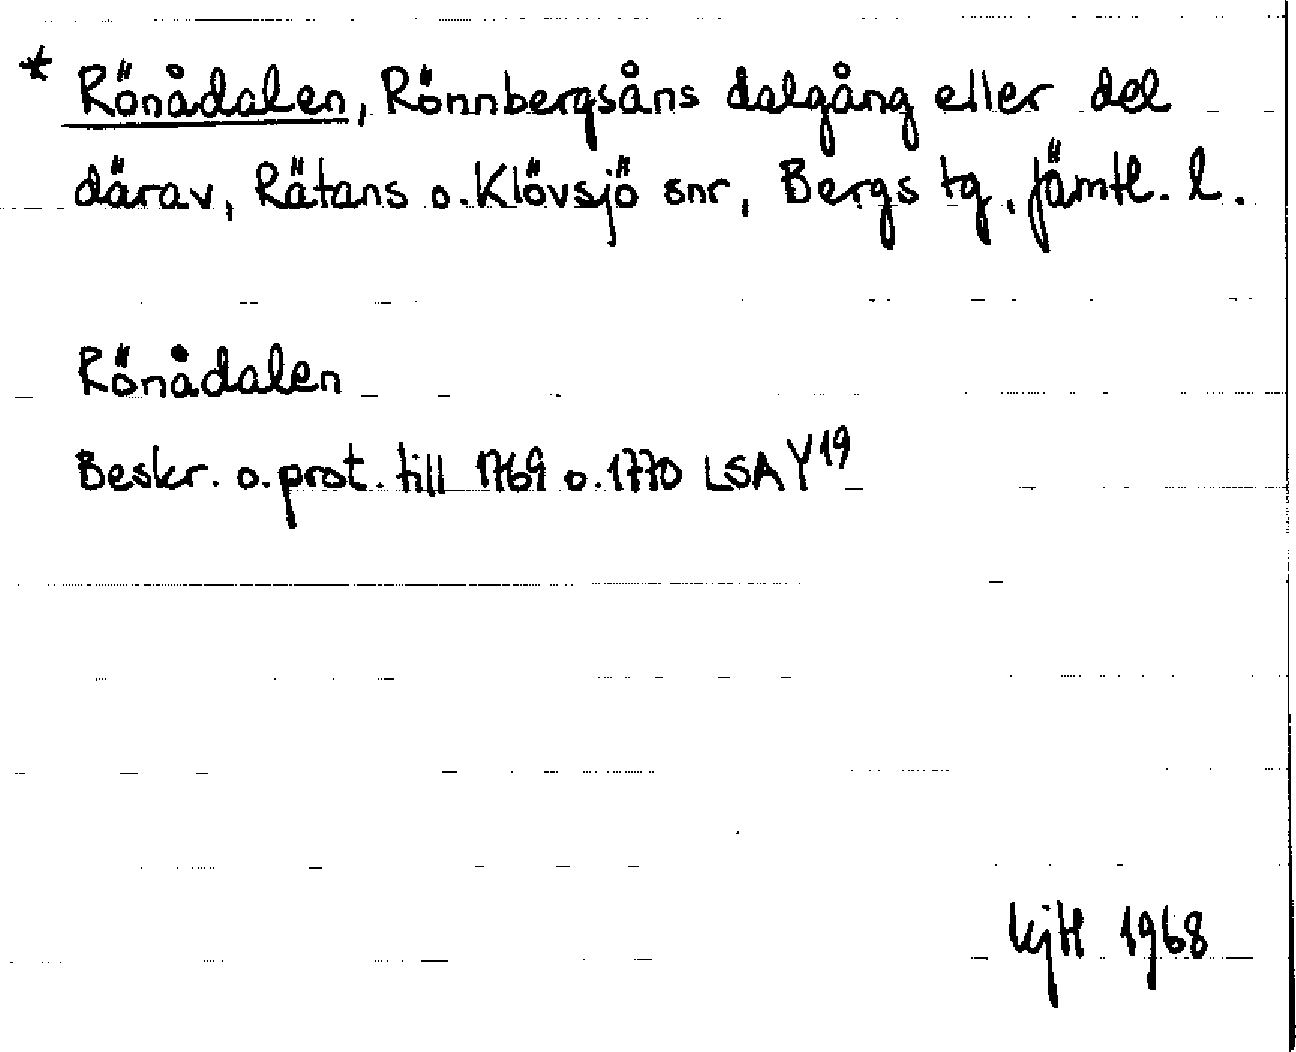 * Rönådalen, Rönnbergsåns dalgång eller del
därav, Rätans o. Klövsjö snr, Bergs tg, Jämtl. l.
Rönådalen
Beskr. o. prot. till 1769 o. 1770 LSA Y19
KjH 1968